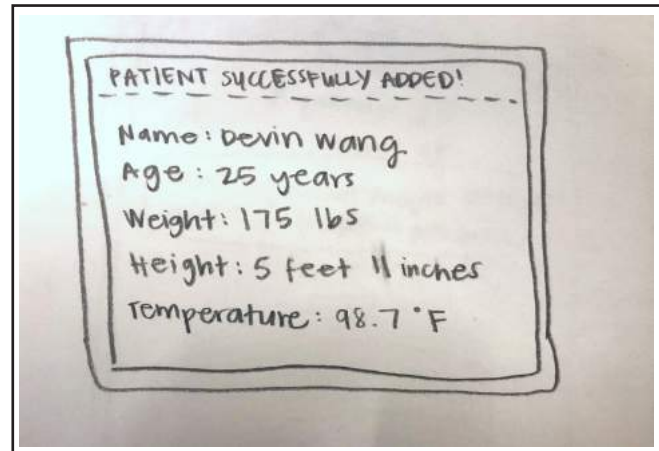 PATIENT SUCCESSFULLY ADDED!
Name: Devin Wang
Age: 25 years
Weight: 175 lbs
Height: 5 feet 11 inches
Temperature: 98.7 °F